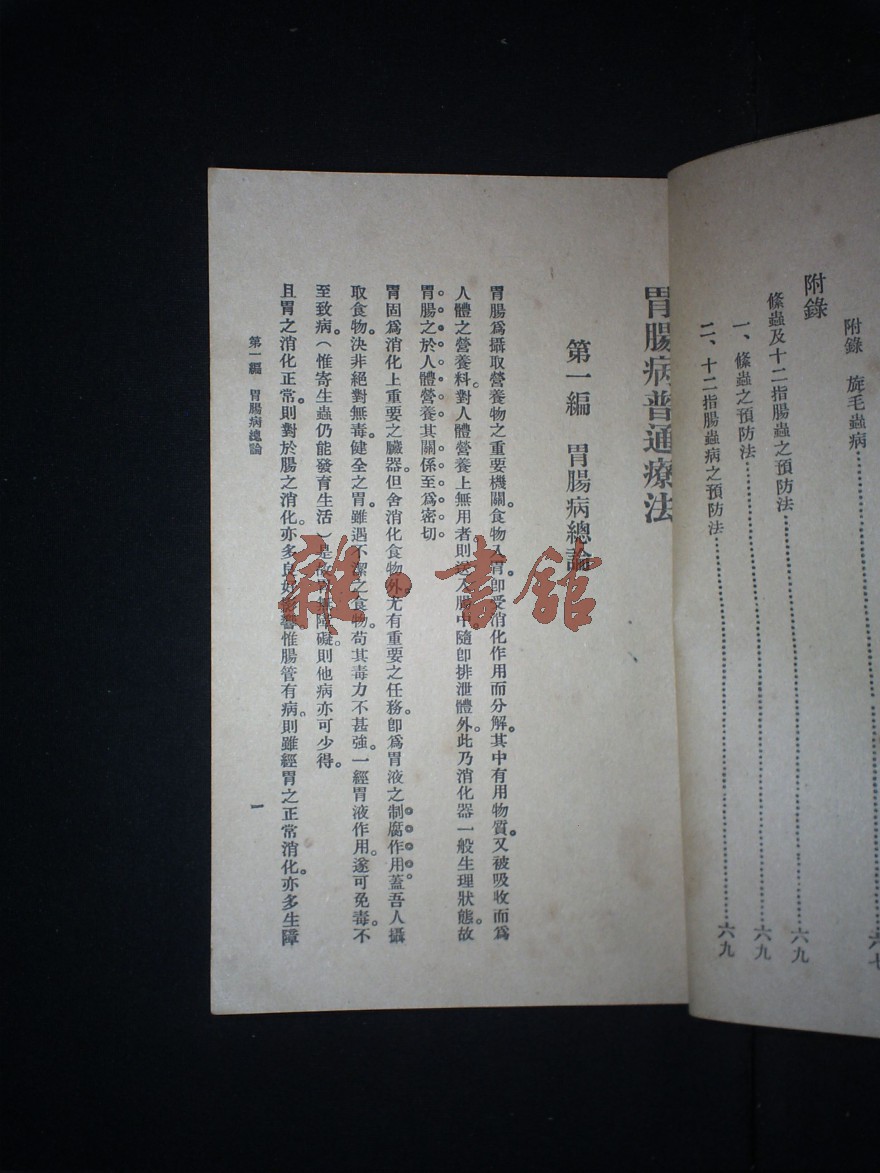 附錄 旋毛蟲病……六七
附錄
條蟲及十二指腸蟲之預防法……六九
一、條蟲之預防法……六九
二、十二指腸蟲病之預防法……六九
胃腸病普通療法
第一編 胃腸病總論
胃腸爲攝取營養物之重要機關。食物入胃。卽受消化作用而分解。其中有用物質。又被吸收而爲
人體之營養料。對人體營養上無用者則送入腸中。隨卽排泄體外。此乃消化器一般生理狀態。故
胃腸之於人體營養其關係至爲密切。
胃固爲消化上重要之臟器。但舍消化食物外。尤有重要之任務。卽爲胃液之制腐作用。蓋吾人攝
取食物。決非絕對無毒。健全之胃。雖遇不潔之食物。苟其毒力不甚強。一經胃液作用。遂可免毒。不
至致病。(惟寄生蟲仍能發育生活)是障礙。則他病亦可少得。
且胃之消化正常。則對於腸之消化。亦多良好影響。惟腸管有病。則雖經胃之正常消化。亦多生障
第一編 胃腸病總論
一
雜·書館